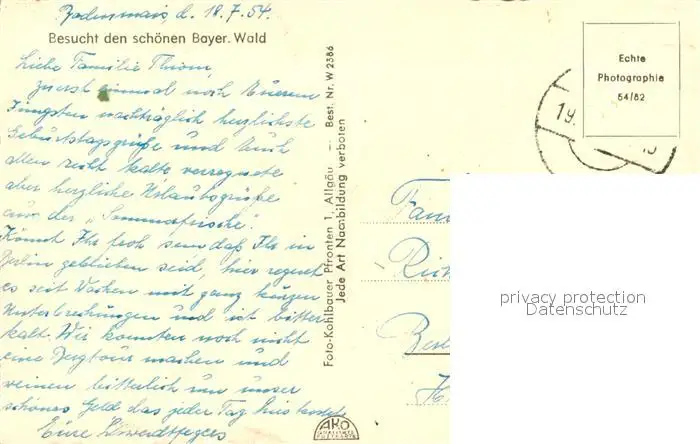 Bodenmais d. 18.7.54.
Besucht den schönen Bayer. Wald
Liebe Familie Thiom,
zuerst einmal noch Euerem
Jüngsten nachträglich herzlichste
Geburtstagsgrüße und Euch
allen recht kalte verregnete
aber herzliche Urlaubsgrüße
aus der „Sommerfrische".
Könnt Ihr froh sein daß Ihr in
Berlin geblieben seid, hier regnet
es seit Wochen mit ganz kurzen
Unterbrechungen und ist bitter
kalt. Wir konnten noch nicht
eine Bergtour machen und
weinen bitterlich um unser
schönes Geld das jeder Tag hier kostet
Eure
Foto-Kohlbauer Pfronten 1, Allgäu — Best. Nr. W 2386
Jede Art Nachbildung verboten
AKO
Echte
Photographie
54/82
19.
Fam
Berl
privacy protection
Datenschutz